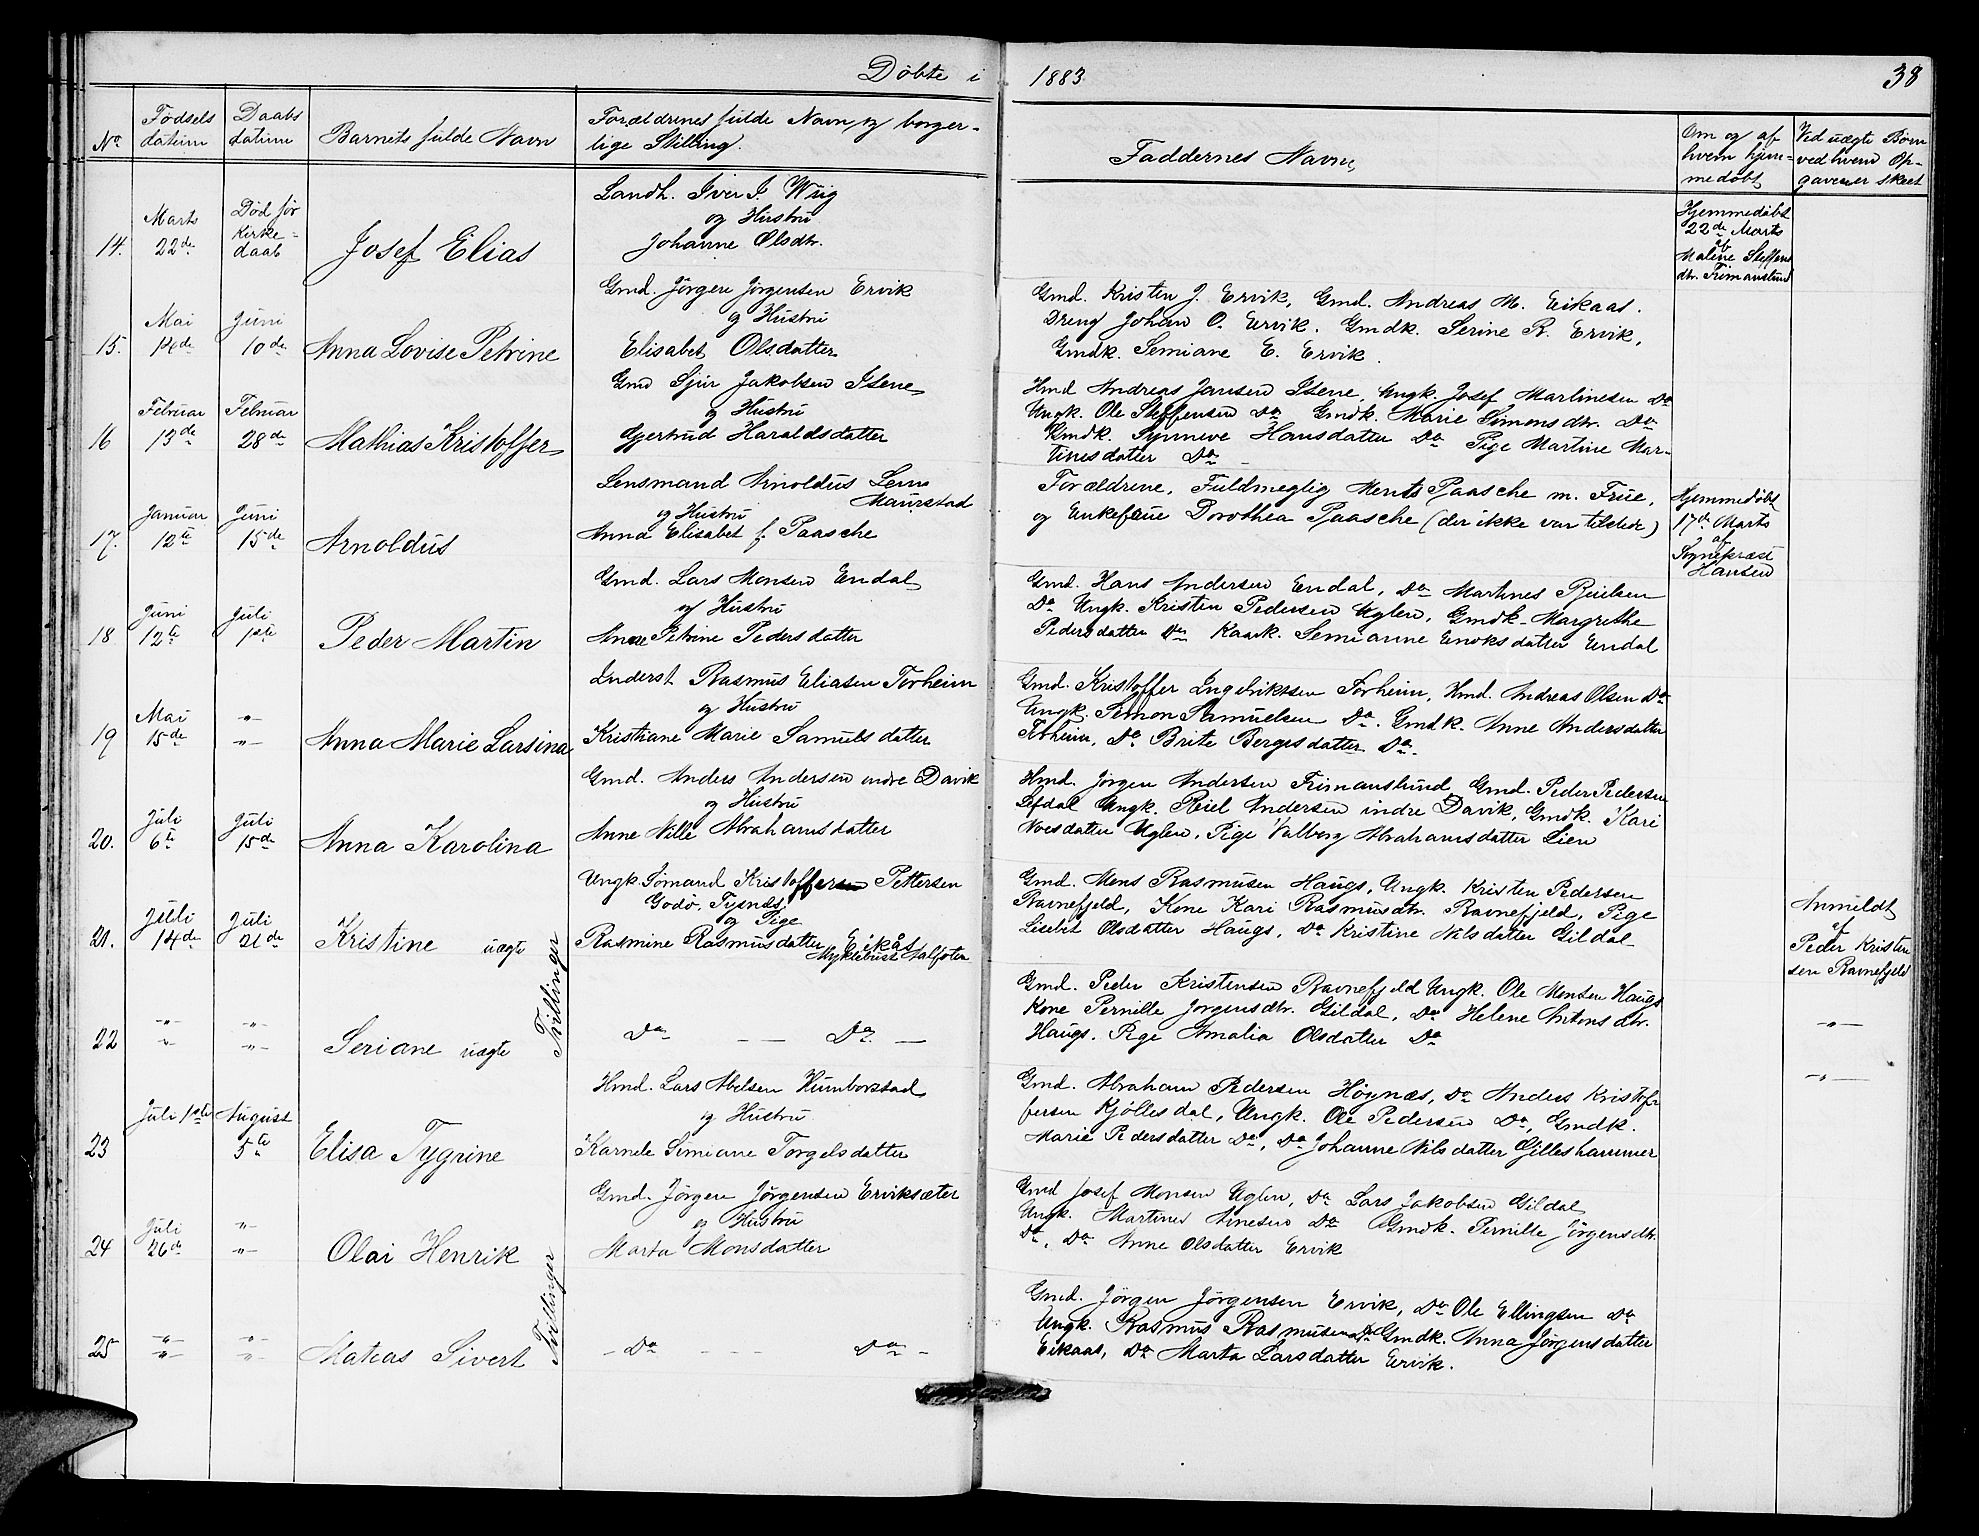 Døbte i 1883
38
No
Fødsels datum
Daabs datum
Barnets fulde Navn
Forældrenes fulde Navn og borger-
lige Stilling.
Faddernes Navn,
Om og af
hvem hjem-
medøbt
Ved uægte Børn
ved hvem Op-
gaven er skeet
14.
Marts
22de
Død før
Kirke-
daab
Josef Elias
Landh. Iver I. Wiig
og Hustru
Johanne Olsdtr.
Hjemmedøbt
22de Marts
af
Maline Steffens
dtr. Frimanslund
15.
Mai
Juni
10de
Anna Lovise Petrine
Gmd. Jørgen Jørgensen Ervik
og Hustru
Elisabet Olsdatter
Gmd. Kristen J. Ervik, Gmd. Andreas M. Eikaas.
Dreng Johan O. Ervik. Gmdk. Serine R. Ervik,
Gmdk. Semiane E. Ervik.
16
Februar
13de
Februar
28de
Mathias Kristoffer
Gmd Sjur Jakobsen Isene
og Hustru
Gjertrud Haraldsdatter
Hmd Andreas Jansen Isene, Ungk. Josef Martinesen Do
Ungk. Ole Steffensen Do Gmdk. Marie Simonsdtr. Do
Gmdk. Synneve Hansdatter Do Pige Martine Mar-
tinesdatter Do -
17.
Januar
12te
Juni
15de
Arnoldus
Lensmand Arnoldus Lem
Maurstad
og Hustru
Anna Elisabet f. Paasche
Forældrene, Fuldmegtig Ments Paasche m. Frue,
og Enkefrue Dorothea Paasche (der ikke var tilstede)
Hjemmedøbt
17de Marts
af
Sognepræst
Hansen
18.
Juni
12te
Juli
1ste
Peder Martin
Gmd. Lars Monsen Endal
og Hustru
Anne Petrine Pedersdatter
Gmd. Hans Andersen Endal, Do Martines Reielsen
Do Ungk. Kristen Pedersen Uglen, Gmdk. Margrethe
Pedersdatter Do Kaark. Semianne Enoksdatter Endal
19
Mai
15de
-"-
-"-
Anna Marie Larsina
Inderst Rasmus Eliasen Forheim
og Hustru
Kristiane Marie Samuelsdatter
Gmd. Kristoffer Ingebriktsen Forheim, Hmd. Andreas Olsen Do
Ungk. Simon Samuelsen Do. Gmdk. Anne Andersdatter
Forheim, Do Brite Bergesdatter Do.
20.
Juli
6te
Juli
15de
Anna Karolina
Gmd. Anders Andersen indre Davik
og Hustru
Anne Nille Abrahamsdatter
Hmd. Jørgen Andersen Frimanslund, Gmd. Peder Pedersen
Lefdal Ungk. Reiel Andersen indre Davik, Gmdk. Kari
Noesdatter Uglen, Pige Valborg Abrahamsdatter Lien
21.
Juli
14de
Juli
21de
Kristine uægte
Tvillinger
Ungk. Sømand Kristoffersen Pettersen
Godø, Tysnæs,
og Pige
Rasmine Rasmusdatter Eikås
Myklebust Aalfoten
Gmd. Mons Rasmusen Haugs, Ungk. Kristen Pedersen
Ravnefjeld, Kone Kari Rasmusdtr. Ravnefjeld, Pige
Lisebit Olsdatter Haugs, Do Kristine Nilsdatter Gildal
Anmeldt
af
Peder Kristen
sen Ravnefjeld
22
-"-
-"-
-"-
-"-
Seriane uægte
Do - - Do -
Gmd. Peder Kristensen Ravnefjeld Ungk. Ole Monsen Haugs
Kone Pernille Jørgensdtr. Gildal, Do Helene Antonsdtr.
Haugs. Pige Amalia Olsdatter Do
-"-
-"-
23
Juli 1ste
August
5te
Elisa Tygrine
Hmd. Lars Abelsen Humborstad
og Hustru
Karnele Simiane Torgelsdatter
Gmd. Abraham Pedersen Høgnæs, Do Anders Kristof
fersen Kjøllesdal, Ungk. Ole Pedersen Do, Gmdk.
Marie Pedersdatter Do, Do Johanne Nilsdatter Gilleshammer
24
Juli
26de
-"-
-"-
Olai Henrik
Tvillinger
Gmd. Jørgen Jørgensen Erviksæter
og Hustru
Marta Monsdatter
Gmd Josef Monsen Uglen, Do Lars Jakobsen Gildal
Ungk. Martines Arnesen Do Gmdk. Pernille Jørgensdtr.
Do, Do Anne Olsdatter Ervik
25
-"-
-"-
-"-
-"-
Mateas Sivert
- Do - - - Do -
Gmd. Jørgen Jørgensen Ervik, Do Ole Ellingsen Do
Ungk. Rasmus Rasmusen Do Gmdk. Anna Jørgensdatter
Eikaas, Do Marta Larsdatter Ervik.